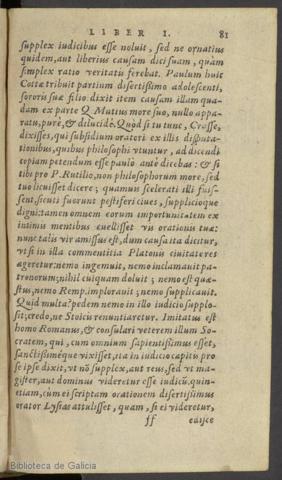 LIBER I. 81
supplex iudicibus esse noluit, sed ne ornatius
quidem, aut liberius causam dici suam, quàm
simplex ratio veritatis ferebat. Paulum huic
Cottæ tribuit partium disertissimo adolescenti,
sororis suæ filio. dixit item causam illam qua-
dam ex parte Q. Mutius more suo, nullo appa-
ratu, purè, & dilucidè. Quòd si tu tunc, Crasse,
dixisses, qui subsidium oratori ex illis disputa-
tionibus, quibus philosophi vtuntur, ad dicendi
copiam petendum esse paulò antè dicebas: & si
tibi pro P. Rutilio, non philosophorum more, sed
tuo licuisset dicere; quamuis scelerati illi fuis-
sent, sicuti fuerunt pestiferi ciues, supplicioque
digni: tamen omnem eorum importunitatem ex
intimis mentibus euellisset vis orationis tuæ:
nunc talis vir amissus est, dum causa ita dicitur,
vt si in illa commentitia Platonis ciuitate res
ageretur: nemo ingemuit, nemo inclamauit pa-
tronorum; nihil cuiquam doluit ; nemo est quæ-
stus, nemo Remp. implorauit ; nemo supplicauit.
Quid multa? pedem nemo in illo iudicio supplo-
sit; credo, ne Stoicis renuntiaretur. Imitatus est
homo Romanus, & consularis veterem illum So-
cratem, qui, cum omnium sapientissimus esset,
sanctissiméque vixisset, ita in iudicio capitis pro
se ipse dixit, vt nō supplex, aut reus, sed vt ma-
gister, aut dominus videretur esse iudicū. quin-
etiam, cum ei scriptam orationem disertissimus
orator Lysias attulisset, quam, si ei videretur,
ff edisce
Biblioteca de Galicia